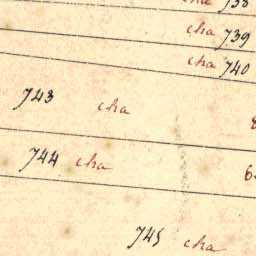 cha 738
cha 739
cha 740
743 cha
744 cha
745 cha